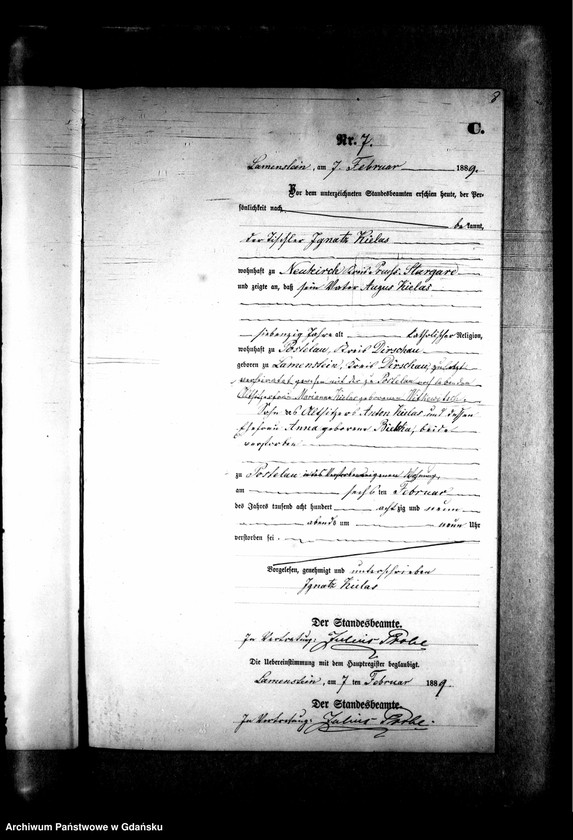 8
C.
Nr. 7.
Lamenstein, am 7. Februar 1889.
Vor dem unterzeichneten Standesbeamten erschien heute, der Per-
sönlichkeit nach
be kannt,
der Tischler Ignatz Kielas
wohnhaft zu Neukirch Kreis Preuss. Stargard
und zeigte an, daß sein Vater August Kielas
siebenzig Jahre alt katholischer Religion,
wohnhaft zu Postelau, Kreis Dirschau
geboren zu Lamenstein, Kreis Dirschau, zuletzt
verheirathet gewesen mit der zu Postelau noch lebenden
Marianna Kielas geborenen
Sohn des Altsitzers Anton Kielas und dessen
Ehefrau Anna geborene beide
verstorben
zu Postelau in des Verstorbenen eigenen Wohnung,
am sechs ten Februar
des Jahrs tausend acht hundert acht zig und neun
abends um neun Uhr
verstorben sei
Vorgelesen, genehmigt und unterschrieben
Ignatz Kielas
Der Standesbeamte.
In Vertretung: Julius
Die Uebereinstimmung mit dem Hauptregister beglaubigt.
Lamenstein, am 7 ten Februar 1889.
Der Standesbeamte.
In Vertretung: Julius
Archiwum Państwowe w Gdańsku